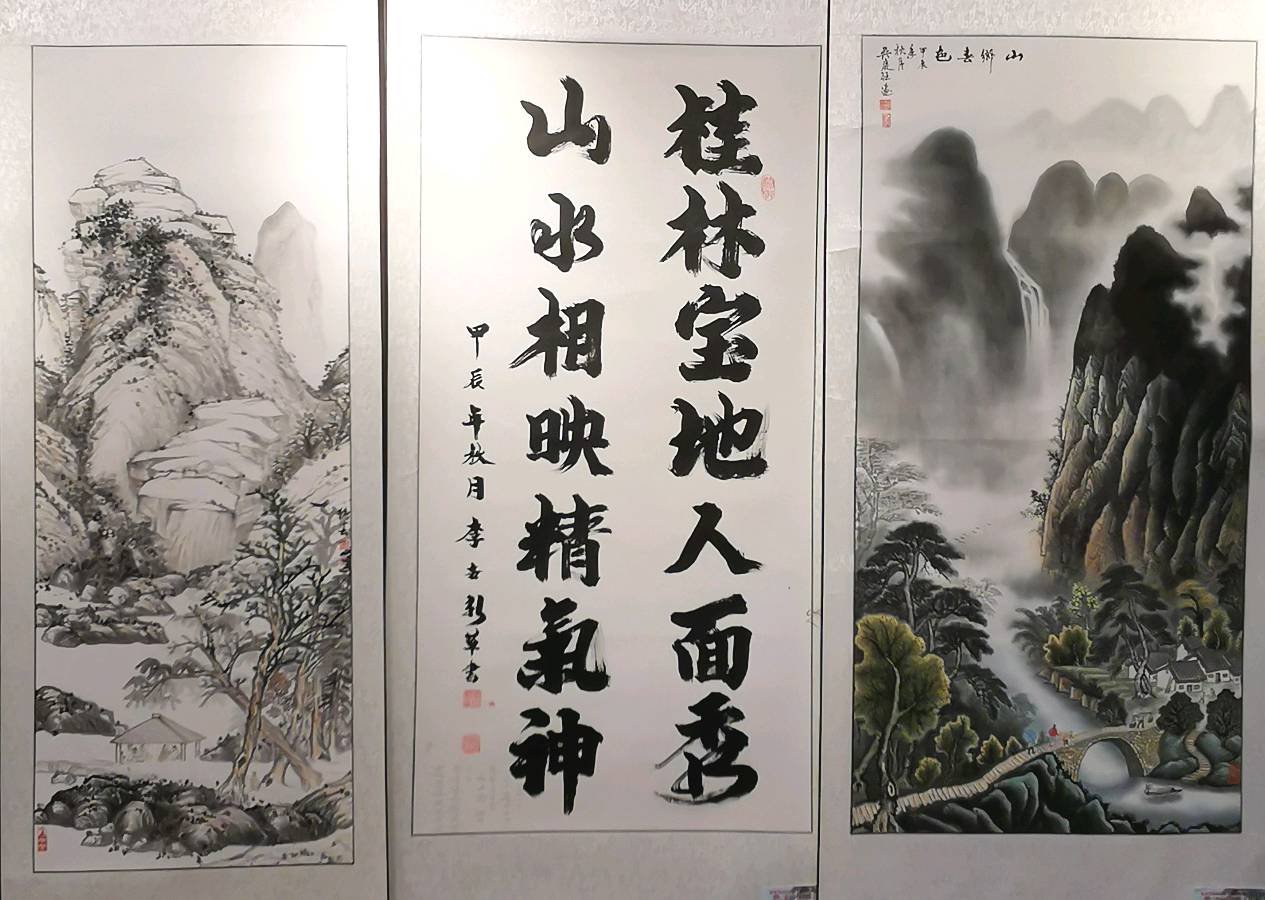 桂林宝地人面秀
山水相映精氣神
甲辰年秋月李
書
山鄉春色
甲辰
年秋月